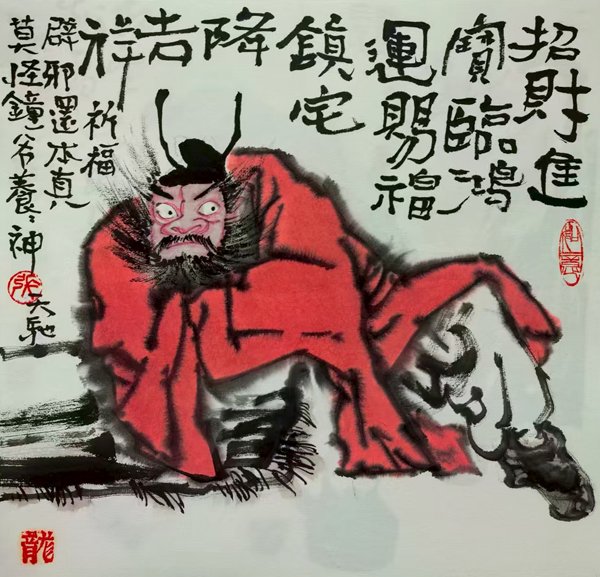 招財進
寶臨鴻
運賜福
鎮宅
降
吉
祥
祈福
辟邪還本真
莫怪鐘爷養々神
龍